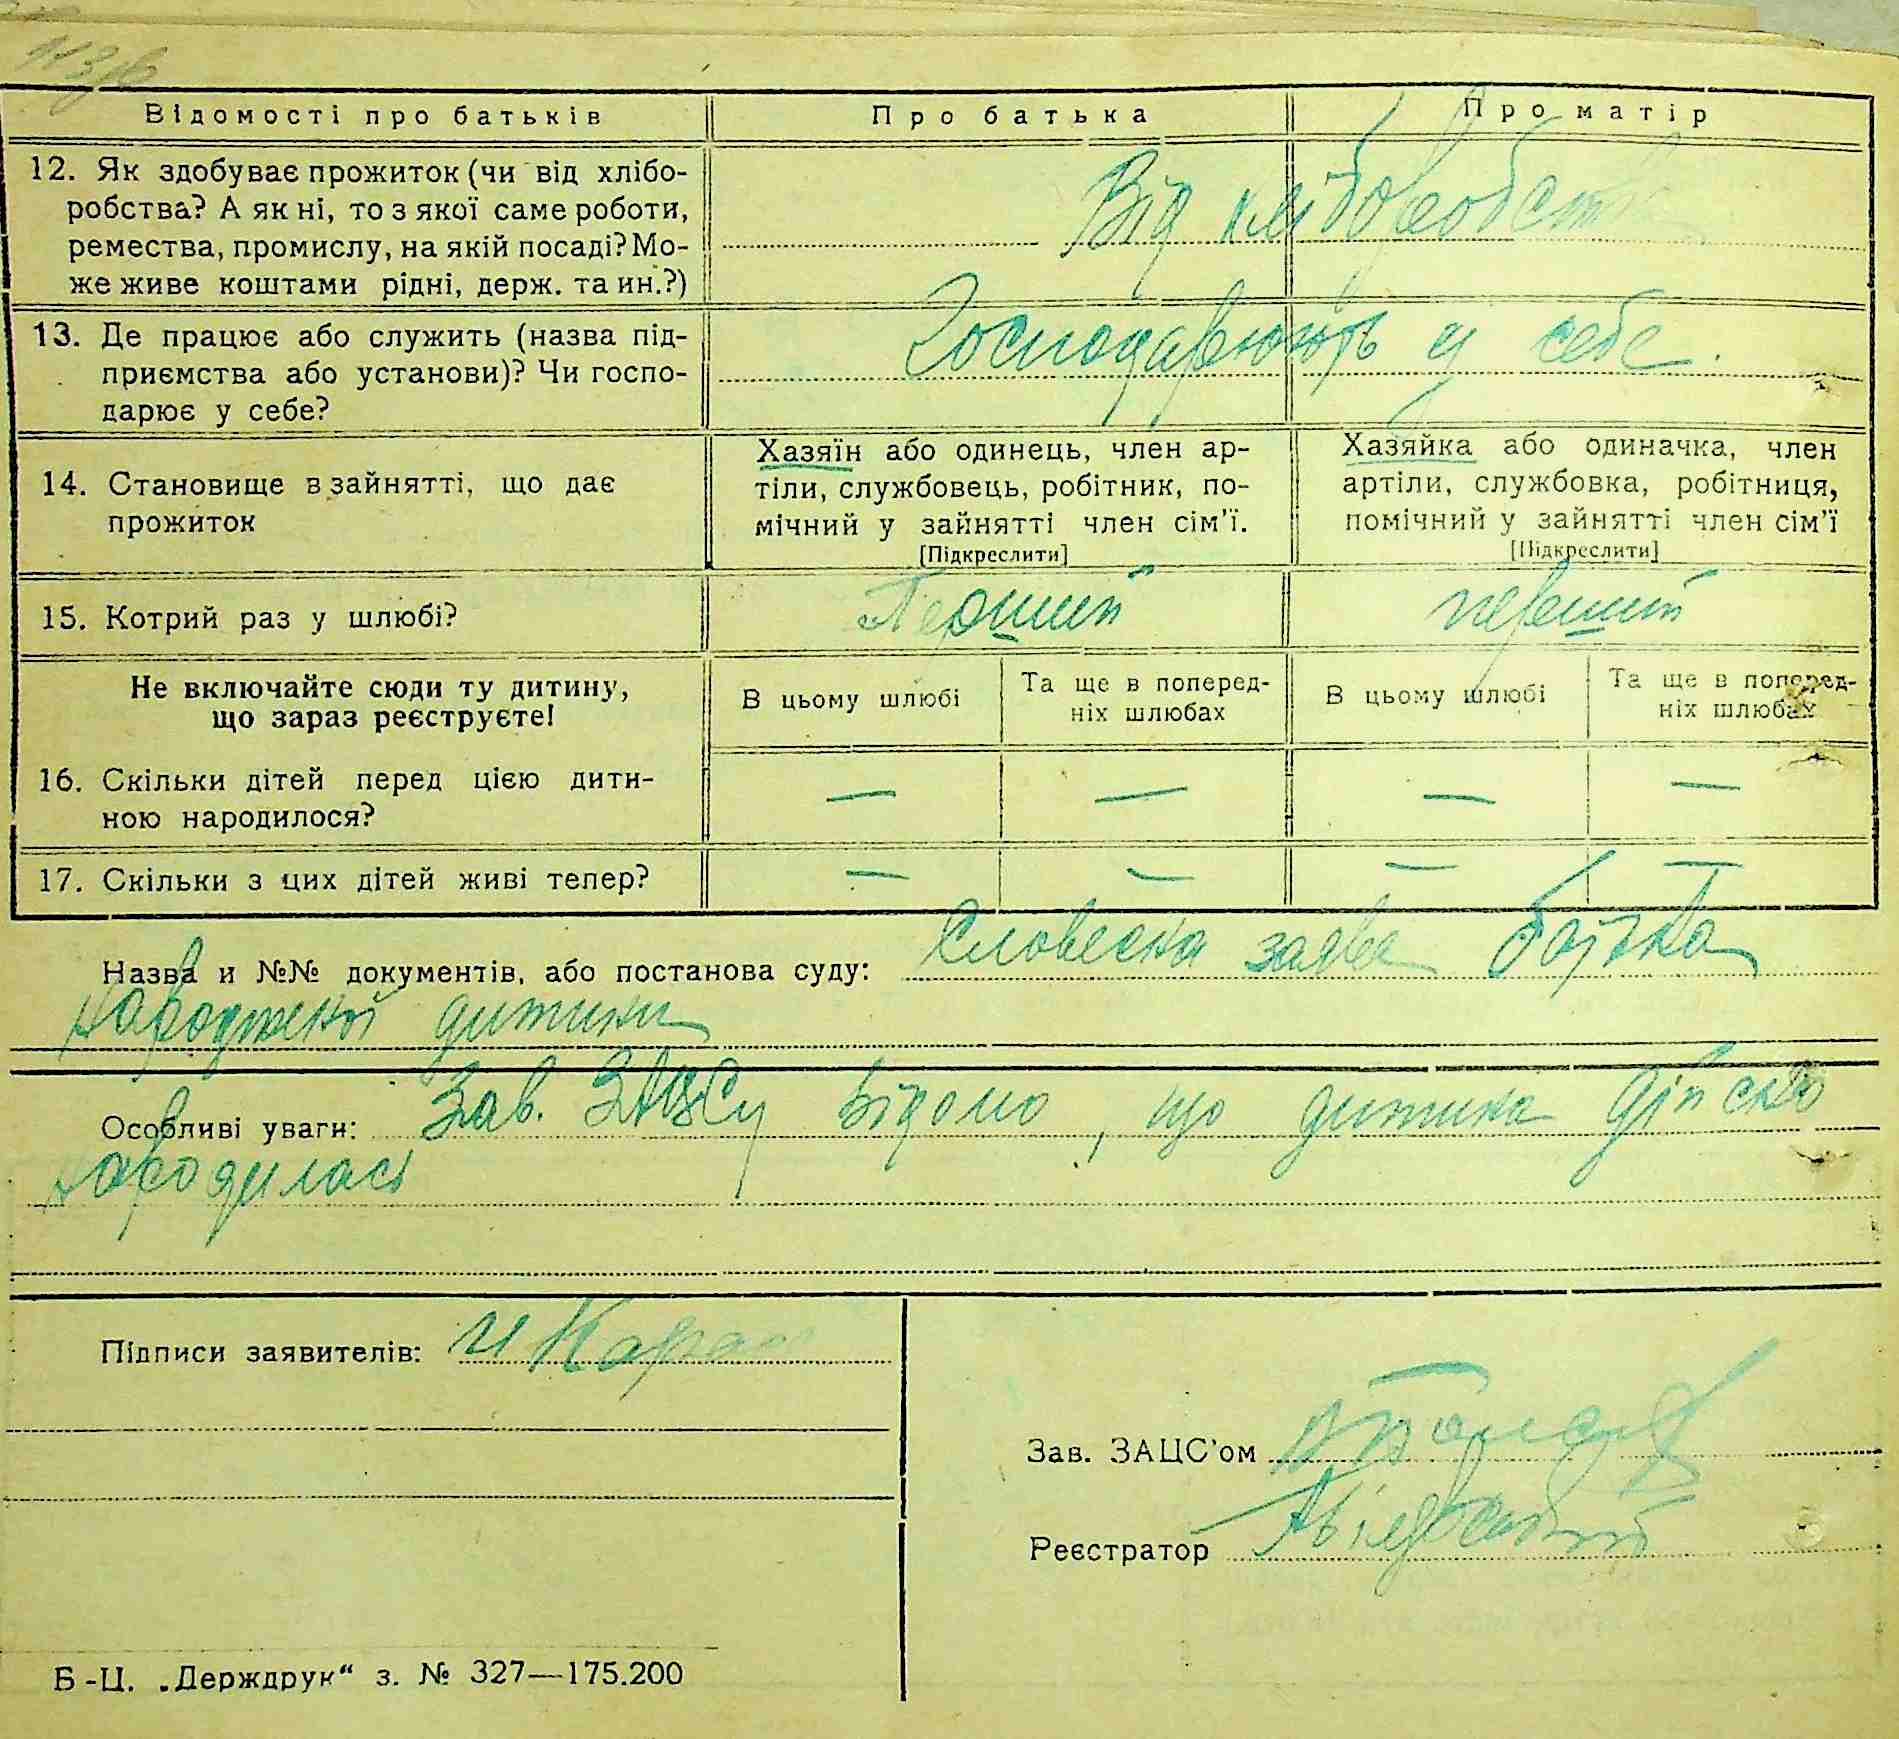 Відомості про батьків Про батька Про матір
12. Як здобуває прожиток (чи від хлібо-
робства? А як ні, то з якої саме роботи,
ремества, промислу, на якій посаді? Мо-
же живе коштами рідні, держ. та ин.?)
Від хліборобства
13. Де працює або служить (назва під-
приємства або установи)? Чи госпо-
дарює у себе?
Господарюють у себе.
14. Становище в зайнятті, що дає
прожиток
Хазяїн або одинець, член ар-
тіли, службовець, робітник, по-
мічний у зайнятті член сім'ї.
[Підкреслити]
Хазяйка або одиначка, член
артіли, службовка, робітниця,
помічний у зайнятті член сім'ї
[Підкреслити]
15. Котрий раз у шлюбі? Перший перший
Не включайте сюди ту дитину,
що зараз реєструєте!
В цьому шлюбі
Та ще в поперед-
ніх шлюбах
В цьому шлюбі
Та ще в поперед-
ніх шлюбах
16. Скільки дітей перед цією дити-
ною народилося?
— — — —
17. Скільки з цих дітей живі тепер? — — — —
Назва и №№ документів, або постанова суду: Словесна заява батька
народженої дитини
Особливі уваги: Зав. ЗАЦСу відомо, що дитина дійсно
народилась
Підписи заявителів:
Зав. ЗАЦС'ом
Реєстратор
Б-Ц. „Держдрук“ з. № 327—175.200